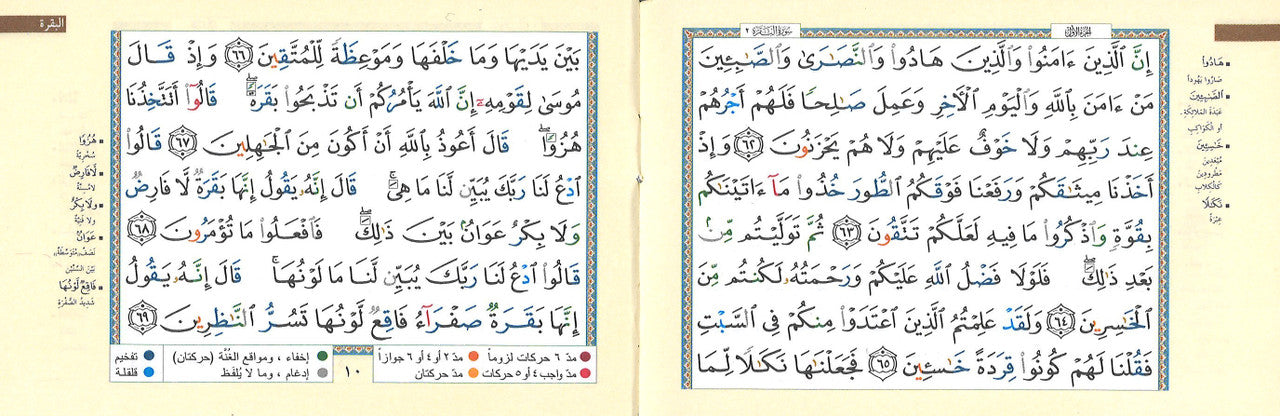 الجزء الأول
سورة البقرة ٢
إِنَّ ٱلَّذِينَ ءَامَنُوا۟ وَٱلَّذِينَ هَادُوا۟ وَٱلنَّصَٰرَىٰ وَٱلصَّٰبِـِٔينَ
مَنْ ءَامَنَ بِٱللَّهِ وَٱلْيَوْمِ ٱلْءَاخِرِ وَعَمِلَ صَٰلِحًا فَلَهُمْ أَجْرُهُمْ
عِندَ رَبِّهِمْ وَلَا خَوْفٌ عَلَيْهِمْ وَلَا هُمْ يَحْزَنُونَ ٦٢ وَإِذْ
أَخَذْنَا مِيثَٰقَكُمْ وَرَفَعْنَا فَوْقَكُمُ ٱلطُّورَ خُذُوا۟ مَآ ءَاتَيْنَٰكُم
بِقُوَّةٍ وَٱذْكُرُوا۟ مَا فِيهِ لَعَلَّكُمْ تَتَّقُونَ ٦٣ ثُمَّ تَوَلَّيْتُم مِّنۢ
بَعْدِ ذَٰلِكَ ۖ فَلَوْلَا فَضْلُ ٱللَّهِ عَلَيْكُمْ وَرَحْمَتُهُۥ لَكُنتُم مِّنَ
ٱلْخَٰسِرِينَ ٦٤ وَلَقَدْ عَلِمْتُمُ ٱلَّذِينَ ٱعْتَدَوْا۟ مِنكُمْ فِى ٱلسَّبْتِ
فَقُلْنَا لَهُمْ كُونُوا۟ قِرَدَةً خَٰسِـِٔينَ ٦٥ فَجَعَلْنَٰهَا نَكَٰلًا لِّمَا
هَادُوا۟
صاروا يهوداً
الصَّٰبِـِٔين
عبدة الملائكة
أو الكواكب
خَٰسِـِٔينَ
مُبْعَدين
مطرودين
كالكلاب
نَكَٰلًا
عبرة
البقرة
بَيْنَ يَدَيْهَا وَمَا خَلْفَهَا وَمَوْعِظَةً لِّلْمُتَّقِينَ ٦٦ وَإِذْ قَالَ
مُوسَىٰ لِقَوْمِهِۦٓ إِنَّ ٱللَّهَ يَأْمُرُكُمْ أَن تَذْبَحُوا۟ بَقَرَةً ۖ قَالُوٓا۟ أَتَتَّخِذُنَا
هُزُوًا ۖ قَالَ أَعُوذُ بِٱللَّهِ أَنْ أَكُونَ مِنَ ٱلْجَٰهِلِينَ ٦٧ قَالُوا۟
ٱدْعُ لَنَا رَبَّكَ يُبَيِّن لَّنَا مَا هِىَ ۚ قَالَ إِنَّهُۥ يَقُولُ إِنَّهَا بَقَرَةٌ لَّا فَارِضٌ
وَلَا بِكْرٌ عَوَانٌۢ بَيْنَ ذَٰلِكَ ۖ فَٱفْعَلُوا۟ مَا تُؤْمَرُونَ ٦٨
قَالُوا۟ ٱدْعُ لَنَا رَبَّكَ يُبَيِّن لَّنَا مَا لَوْنُهَا ۚ قَالَ إِنَّهُۥ يَقُولُ
إِنَّهَا بَقَرَةٌ صَفْرَآءُ فَاقِعٌ لَّوْنُهَا تَسُرُّ ٱلنَّٰظِرِينَ ٦٩
هُزُوًا
سخرية
لا فَارِضٌ
لا مسنّة
ولا بِكْرٌ
ولا فتيّة
عَوَانٌ
نَصَفٌ «متوسطة»
بين السنّين
فَاقِعٌ لَّوْنُهَا
شديد الصفرة
مدّ ٦ حركات لزوماً مدّ ٢ أو ٤ أو ٦ جوازاً
مدّ واجب ٤ أو ٥ حركات مدّ حركتان
١٠
إخفاء ، ومواقع الغنّة (حركتان) تفخيم
إدغام ، وما لا يُلفَظ قلقلة